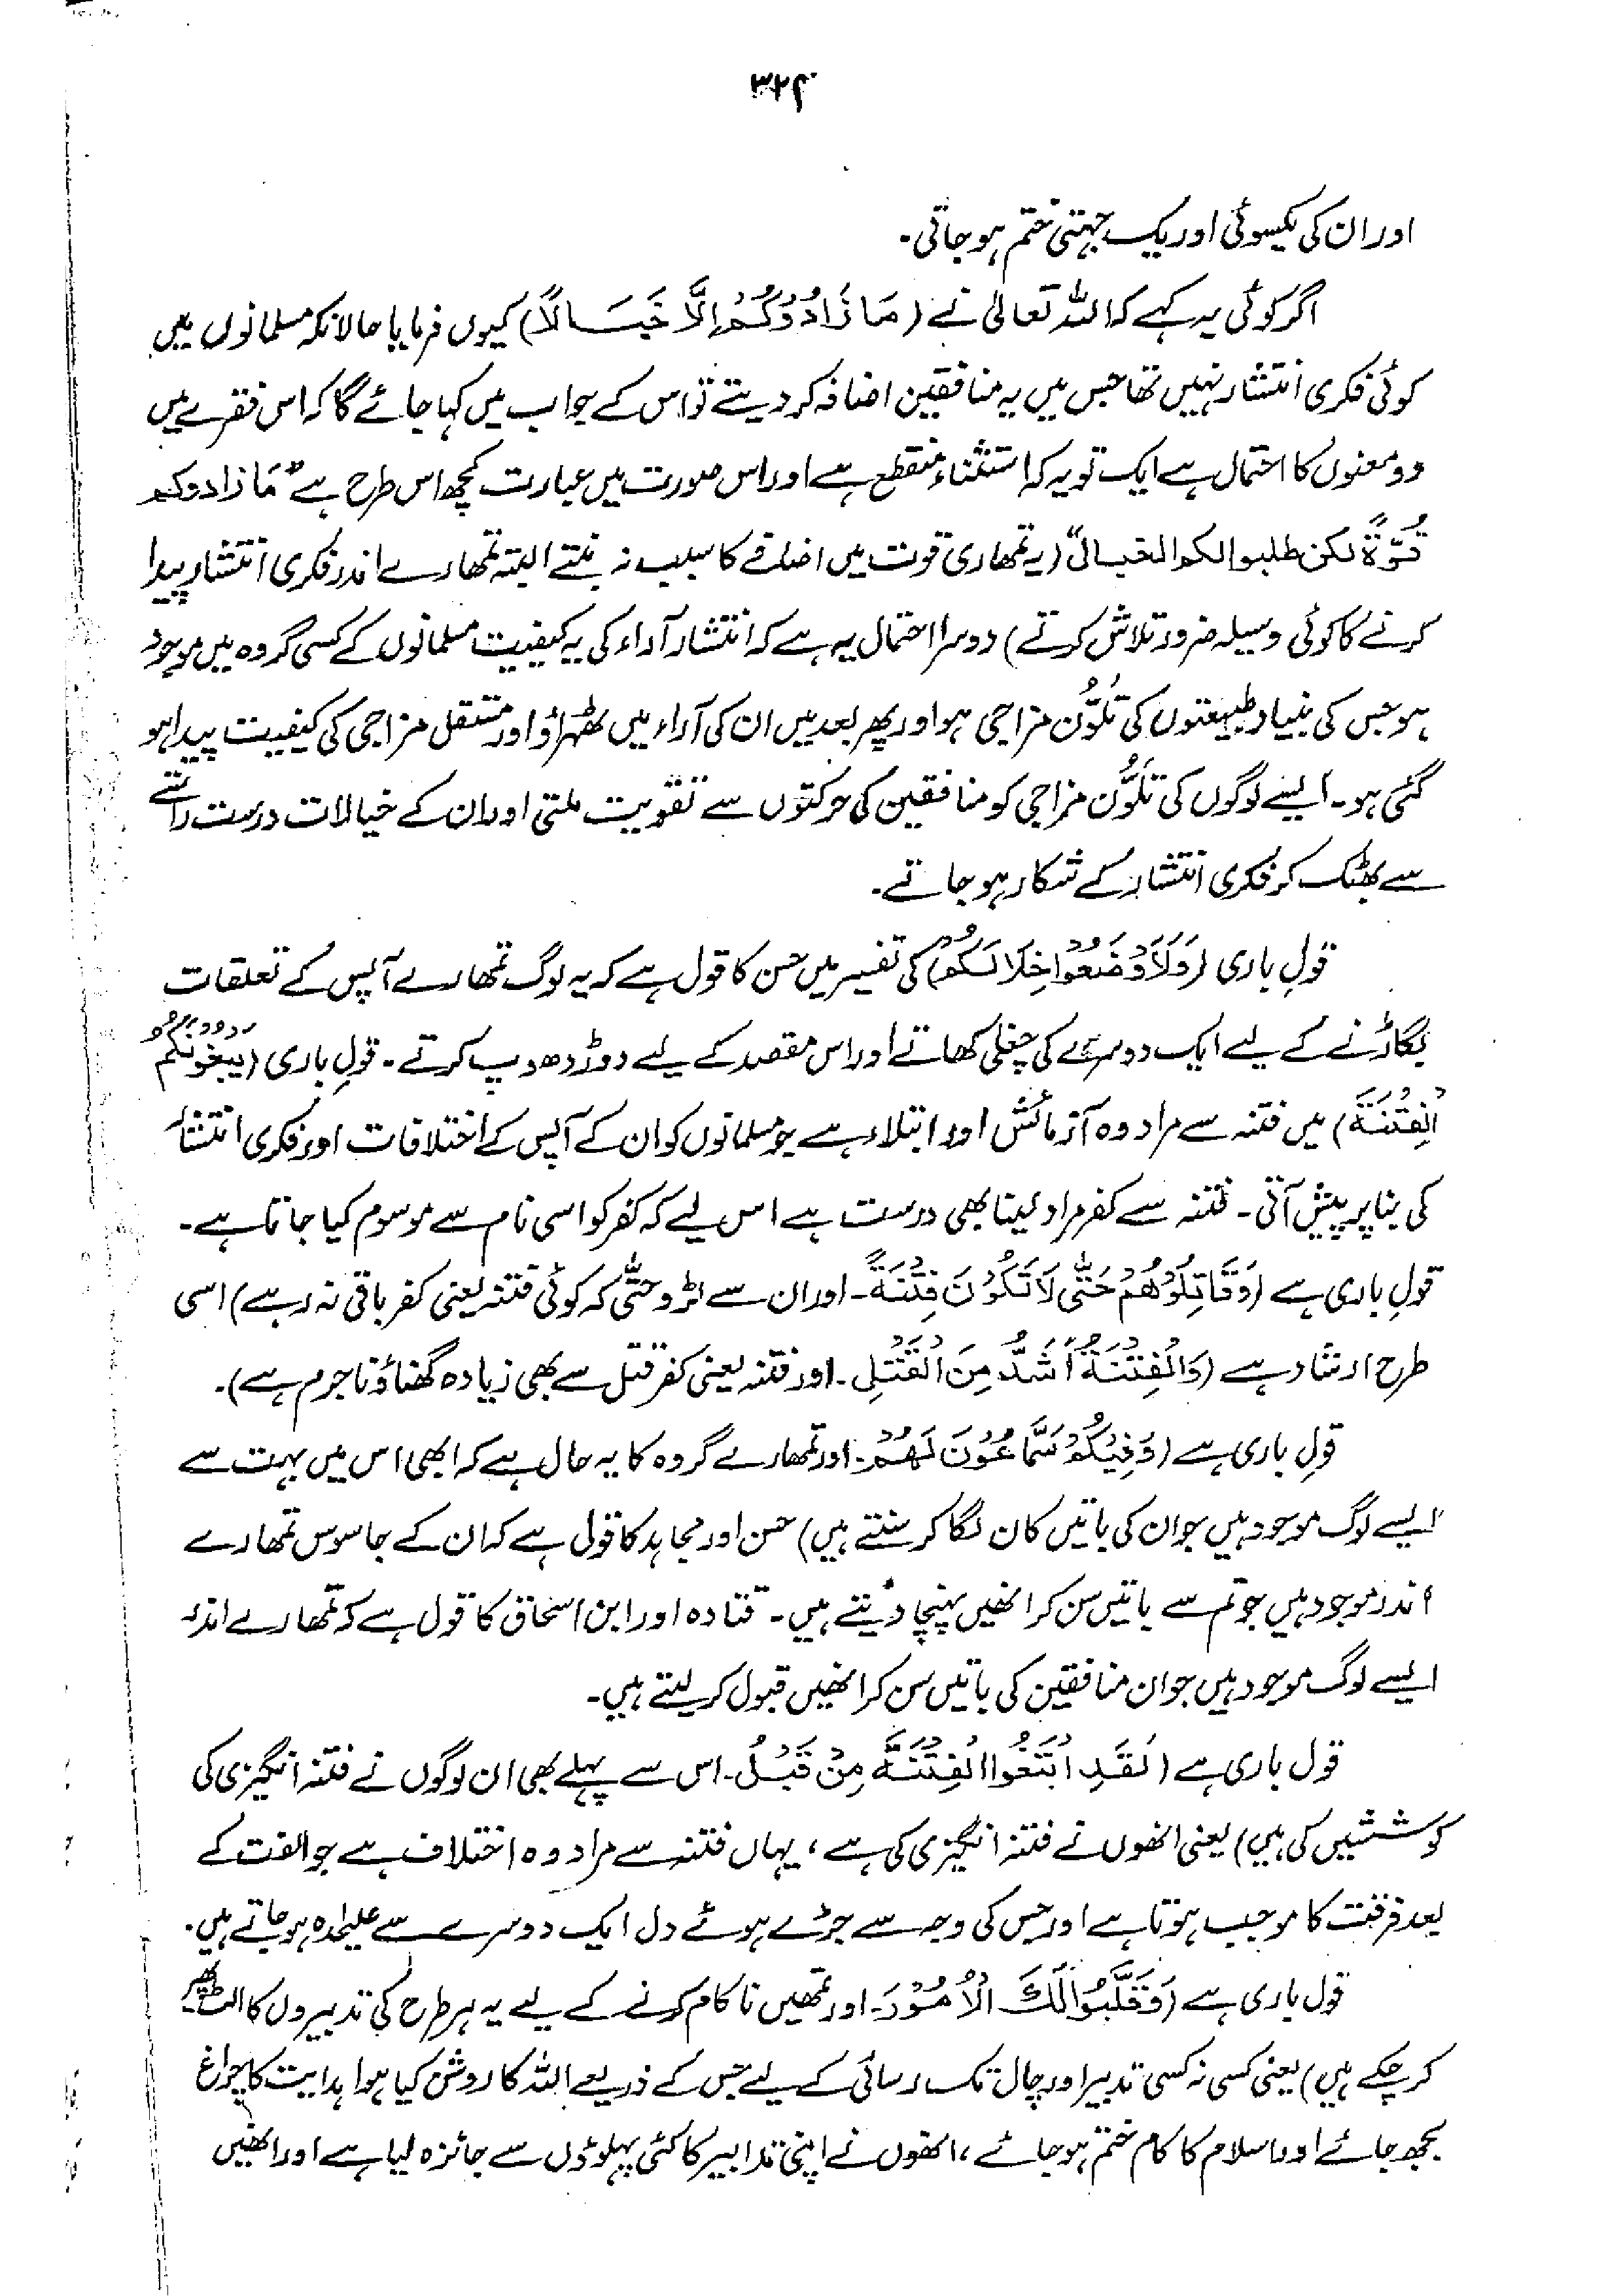 ۳۲۴
اور ان کی یکسوئی اور یک جہتی ختم ہو جاتی۔
اگر کوئی یہ کہے کہ اللہ تعالیٰ نے (مَا زَادُوْكُمْ اِلَّا خَبَالًا) کیوں فرمایا حالانکہ مسلمانوں میں
کوئی فکری انتشار نہیں تھا جس میں یہ منافقین اضافہ کر دیتے تو اس کے جواب میں کہا جائے گا کہ اس فقرے میں
دو معنوں کا احتمال ہے ایک تو یہ کہ استثناء منقطع ہے اور اس صورت میں عبارت کچھ اس طرح ہے "مَا زادوكم
قُوَّةً لكن طلبوا لكم الخبال" (یہ تمھاری قوت میں اضافے کا سبب نہ بنتے البتہ تمھارے اندر فکری انتشار پیدا
کرنے کا کوئی وسیلہ ضرور تلاش کرتے) دوسرا احتمال یہ ہے کہ انتشار آراء کی یہ کیفیت مسلمانوں کے کسی گروہ میں موجود
ہو جس کی بنیاد طبیعتوں کی تَلَوُّن مزاجی ہو اور پھر بعد میں ان کی آراء میں ٹھہراؤ اور مستقل مزاجی کی کیفیت پیدا ہو
گئی ہو۔ ایسے لوگوں کی تَلَوُّن مزاجی کو منافقین کی حرکتوں سے تقویت ملتی اور ان کے خیالات درست راستے
سے بھٹک کر فکری انتشار کے شکار ہو جاتے۔
قولِ باری (وَلَاَوْضَعُوْا خِلَالَكُمْ) کی تفسیر میں حسن کا قول ہے کہ یہ لوگ تمھارے آپس کے تعلقات
بگاڑنے کے لیے ایک دوسرے کی چغلی کھاتے اور اس مقصد کے لیے دوڑ دھوپ کرتے۔ قولِ باری (يَبْغُوْنَكُمُ
الْفِتْنَةَ) میں فتنہ سے مراد وہ آزمائش اور ابتلاء ہے جو مسلمانوں کو ان کے آپس کے اختلافات اور فکری انتشار
کی بنا پر پیش آتی۔ فتنہ سے کفر مراد لینا بھی درست ہے اس لیے کہ کفر کو اسی نام سے موسوم کیا جاتا ہے۔
قولِ باری ہے (وَقَاتِلُوْهُمْ حَتّٰى لَا تَكُوْنَ فِتْنَةٌ۔ اور ان سے لڑو حتّٰی کہ کوئی فتنہ یعنی کفر باقی نہ رہے) اسی
طرح ارشاد ہے (وَالْفِتْنَةُ اَشَدُّ مِنَ الْقَتْلِ۔ اور فتنہ یعنی کفر قتل سے بھی زیادہ گھناؤنا جرم ہے)۔
قولِ باری ہے (وَفِيْكُمْ سَمَّاعُوْنَ لَهُمْ۔ اور تمھارے گروہ کا یہ حال ہے کہ ابھی اس میں بہت سے
ایسے لوگ موجود ہیں جو ان کی باتیں کان لگا کر سنتے ہیں) حسن اور مجاہد کا قول ہے کہ ان کے جاسوس تمھارے
اندر موجود ہیں جو تم سے باتیں سن کر انھیں پہنچا دیتے ہیں۔ قتادہ اور ابن اسحاق کا قول ہے کہ تمھارے اندر
ایسے لوگ موجود ہیں جو ان منافقین کی باتیں سن کر انھیں قبول کر لیتے ہیں۔
قول باری ہے (لَقَدِ ابْتَغَوُا الْفِتْنَةَ مِنْ قَبْلُ۔ اس سے پہلے بھی ان لوگوں نے فتنہ انگیزی کی
کوششیں کی ہیں) یعنی انھوں نے فتنہ انگیزی کی ہے، یہاں فتنہ سے مراد وہ اختلاف ہے جو الفت کے
بعد فرقت کا موجب ہوتا ہے اور جس کی وجہ سے جڑے ہوئے دل ایک دوسرے سے علیحدہ ہو جاتے ہیں۔
قول باری ہے (وَقَلَّبُوْا لَكَ الْاُمُوْرَ۔ اور تمھیں ناکام کرنے کے لیے یہ ہر طرح کی تدبیروں کا الٹ پھیر
کر چکے ہیں) یعنی کسی نہ کسی تدبیر اور چال تک رسائی کے لیے جس کے ذریعے اللہ کا روشن کیا ہوا ہدایت کا چراغ
بجھ جائے اور اسلام کا کام ختم ہو جائے، انھوں نے اپنی تدابیر کا کئی پہلوؤں سے جائزہ لیا ہے اور انھیں